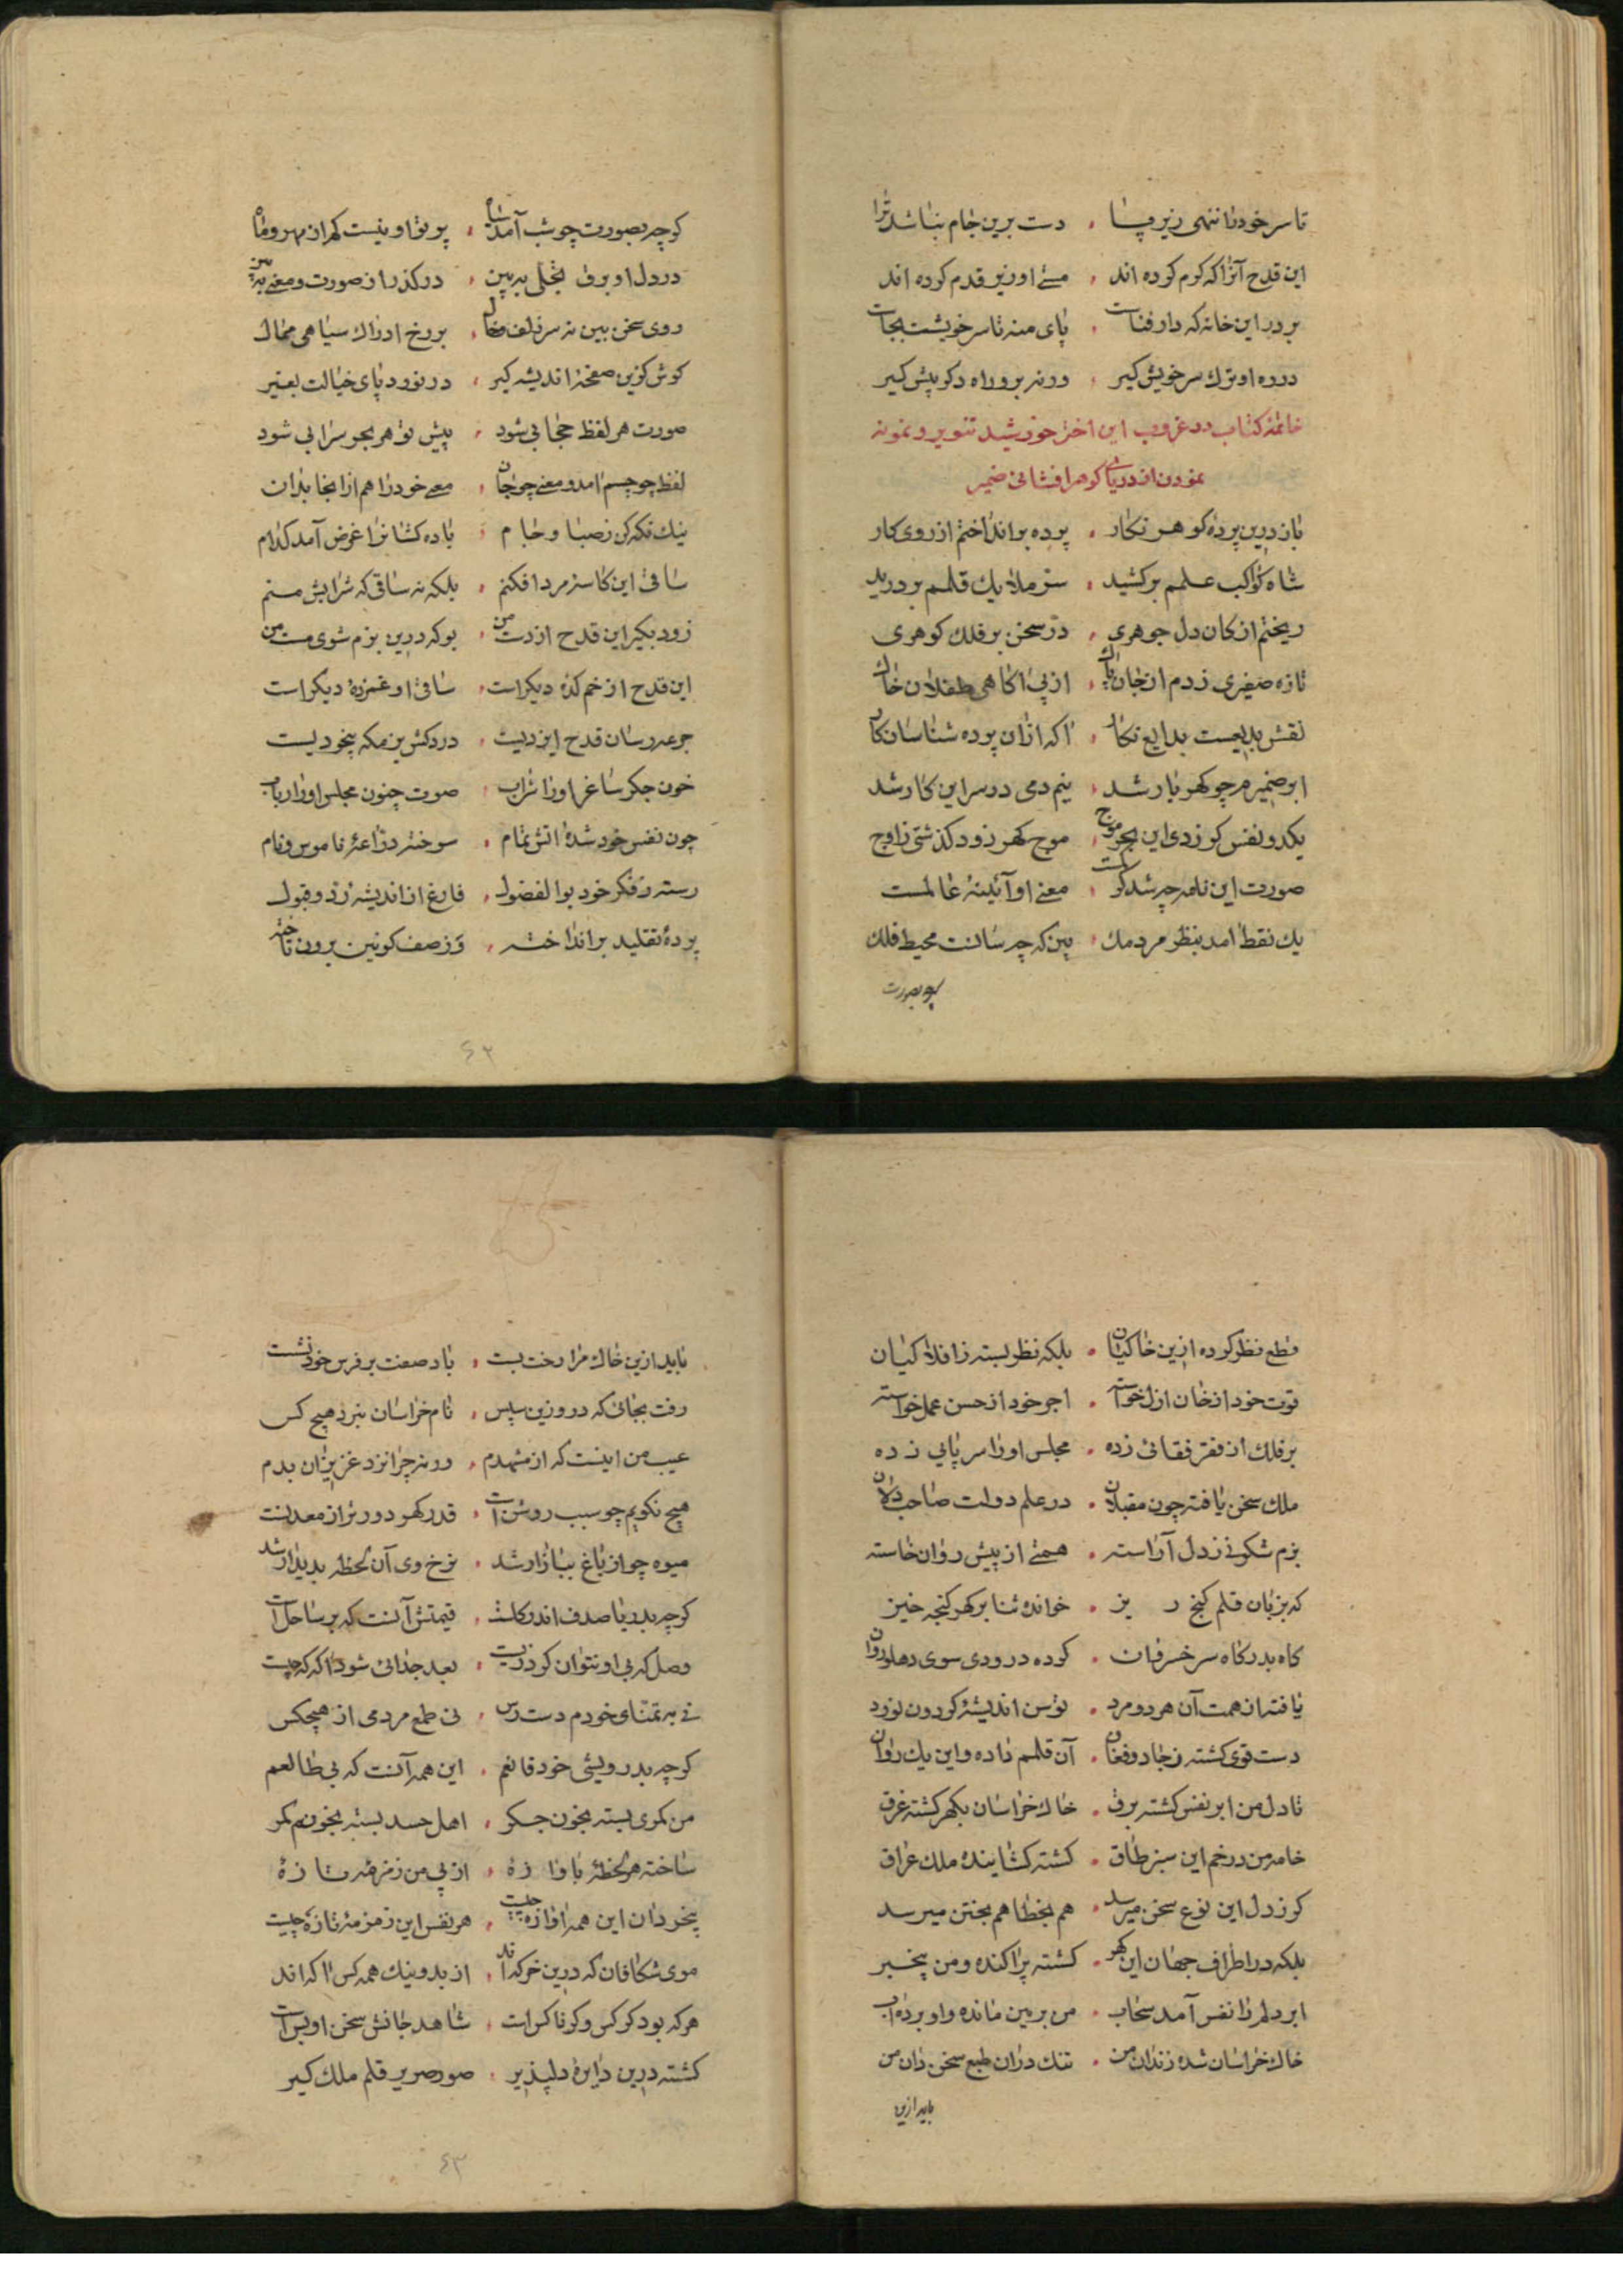 تا سر خود را ننهی زیر پا ، دست برین جام نباشد ترا
این قدح آنرا که کرم کرده اند ، مستی او زیر قدم کرده اند
بر در این خانه که دار فناست ، پای منه تا سر خویشت بجاست
در ره او ترک سر خویش گیر ، ورنه برو راه دگر پیش گیر
خاتمهٔ کتاب در غروب این اختر خورشید تنویر و نمونه
نمودن از دریای گوهر افشانی ضمیر
باز درین پردهٔ گوهر نگار ، پرده برانداختم از روی کار
شاه کواکب علمم برکشید ، ستر ملایک قلمم بر درید
ریختم از کان دل جوهری ، در سخن بر فلک گوهری
تازه صفیری زدم از جان پاک ، از پی آگاهی طفلان خاک
نقش بدیعست بدایع نگار ، آگه ازان پرده شناسان کار
ابر ضمیرم چو گهربار شد ، نیم دمی در سر این کار شد
یکدو نفس گر زدی این بحر موج ، موج گهر زود گذشتی ز اوج
صورت این نامه چه شد گر کمست ، معنی او آئینهٔ عالمست
یک نقط آمد بنظر مردمک ، بین که چه سانست محیط فلک
کرچه بصورت
گرچه بصورت چو شب آمد سیاه ، پرتو او نیست کم از مهر و ماه
در دل او برق تجلی ببین ، درگذر از صورت و معنی ببین
روی سخن بین نه سر زلف و خال ، بر رخ ادراک سیاهی ممال
گوش گزین صفحهٔ اندیشه گیر ، در نرود پای خیالت بقیر
صورت هر لفظ حجابی شود ، پیش تو هر بحر سرابی شود
لفظ چو جسم آمد و معنی چو جان ، معنی خود را هم از اینجا بدان
نیک نگه کن ز صهبا و جام ، باده کشانرا غرض آمد کدام
ساقی این کاسهٔ مرد افکنم ، بلکه نه ساقی که شرابش منم
زود بگیر این قدح از دست من ، بو که درین بزم شوی مست من
این قدح از خم کدهٔ دیگر است ، ساقی او غمزدهٔ دیگر است
جرعه رسان قدح ایزدیست ، دردکش میکده بیخودیست
خون جگر ساغر او را شراب ، صوت جنون مجلس او را رباب
چون نفس خود شده آتش تمام ، سوخته دراعهٔ ناموس و نام
رسته ز فکر خرد بوالفضول ، فارغ از اندیشهٔ رد و قبول
پردهٔ تقلید برانداخته ، وز صف کونین برون تاخته
٤٢
قطع نظر کرده ازین خاکیان ، بلکه نظر بسته ز افلاکیان
قوت خود از خان ازل خواسته ، اجر خود از حسن عمل خواسته
بر فلک از فقر فقائی زده ، مجلس او را سر پایی زده
ملک سخن یافته چون مقبلان ، در علم دولت صاحب دلان
بزم شگرفی ز دل آراسته ، همتی از پیش روان خاسته
که بزبان قلم گنج ریز ، خوانده ثنا بر گهر گنجه خیز
گاه بدرگاه سر خسروان ، کرده درودی سوی دهلی روان
یافته از همت آن هر دو مرد ، توسن اندیشهٔ گردون نورد
دست قوی گشته ز جادو فغان ، آن قلمم داده و این یک روان
تا دل من ابر نفس گشته برق ، خاک خراسان بگهر گشته غرق
خامه من در خم این سبز طاق ، گشته گشایندهٔ ملک عراق
کز دل این نوع سخن میرسد ، هم بخطا هم بختن میرسد
بلکه در اطراف جهان این گهر ، گشته پراکنده و من بیخبر
ابر دلم را نفس آمد سحاب ، من بزمین مانده و او برده آب
خاک خراسان شده زندان من ، تنگ دران طبع سخن دان من
باید ازین
باید ازین خاک مرا رخت بست ، باد صفت بر فرس خود نشست
رفت بجائی که در و زین سپس ، نام خراسان نبرد هیچ کس
عیب من اینست که از مشهدم ، ورنه چرا نزد عزیزان بدم
هیچ نگویم چو سبب روشن است ، قدر گهر دورتر از معدنست
میوه چو از باغ ببازار شد ، نرخ وی آن لحظه پدیدار شد
گرچه بدریا صدف اندر گلست ، قیمتش آنست که بر ساحل است
وصل که بی او نتوان کرد زیست ، بعد جدائی شود آگه که چیست
نی به تمنای خودم دست رس ، نی طمع مردمی از هیچکس
گرچه بدرویشی خود قانعم ، این همه آنست که بی طالعم
من کمری بسته بخون جگر ، اهل حسد بسته بخونم کمر
ساخته هر لحظه باوازهٔ ، از پی من زمزمهٔ تازهٔ
بیخردان این همه آوازه چیست ، هر نفس این زمزمهٔ تازه چیست
موی شکافان که درین خرگه اند ، از بد و نیک همه کس آگه اند
هرکه بود گر کس و گر ناکس است ، شاهد جانش سخن او بس است
گشته درین دایرهٔ دلپذیر ، صور صریر قلم ملک گیر
٤٣